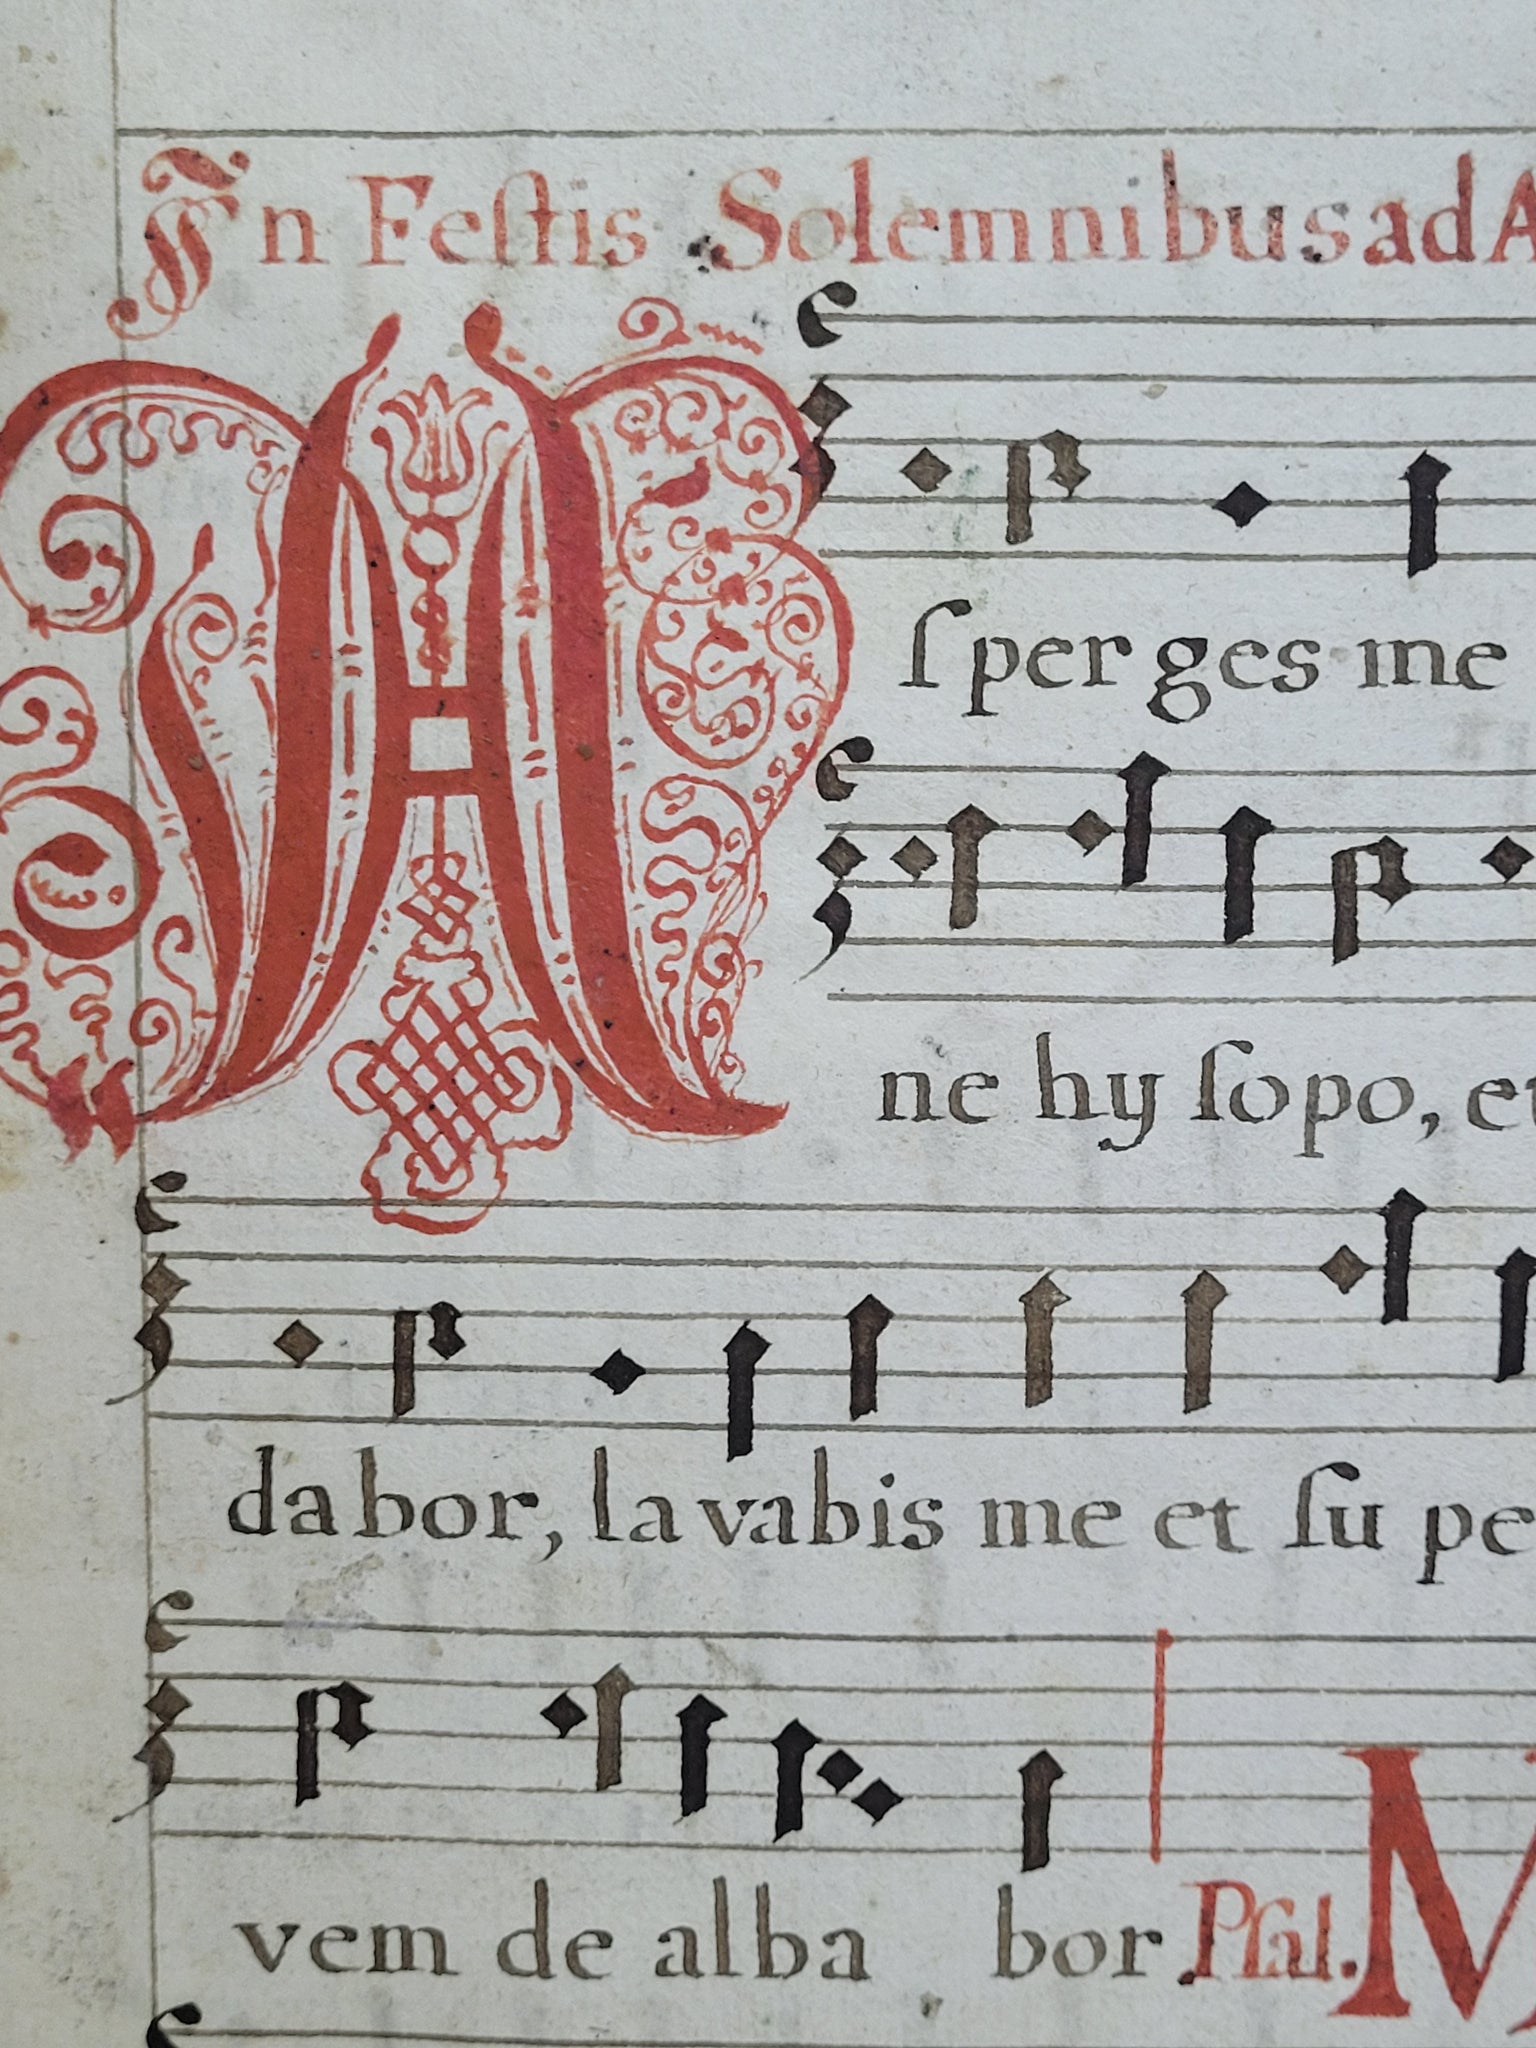 In Feſtis Solemnibus ad A
Aſper ges me
ne hy ſopo, et
da bor, la va bis me et ſu pe
vem de alba bor Pſal. M